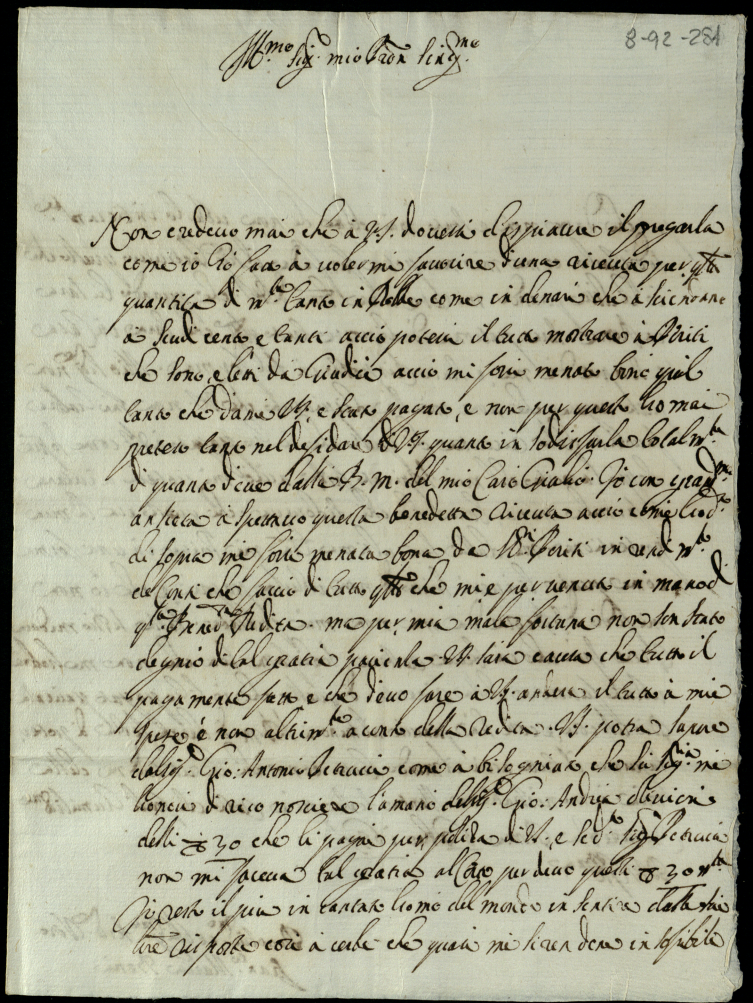 8-92-281
Ill.mo Sig.r mio Pron Sing.mo
Non credevo mai che à V.S. dovessi dispiacere il pregarla
come io ho fatto à volermi favorire d'una riceuta per q.ta
quantità di m.te tanto in Robbe come in denari che ascendano
à scudi cento e tanti acciò potessi il tutto mostrare à Periti
che sono eletti da Giudici acciò mi fosse menato bono quel
tanto che da me V.S. e stato pagato, e non per questo ho mai
preteso tanto nel desiderar di V.S. quanto in sodisfarla total.m.te
di quanto deve dalla B. M. del mio Caro Giulio. Io con grand.ma
ansietà aspettavo questa benedetta riceuta acciò come ho d.o
di sopra mi fosse menata bona da SS.ri Periti in rend.m.to
de Conti che faccio di tutto q.llo che mi e pervenuto in mano di
q.ta Bened.ta Redità. ma per mia mala fortuna non son stato
degnio di tal gratia pacienza V.S. sarà causa che tutto il
pagamento fatto e che devo fare à V.S. anderà il tutto à mie
spese è non altrim.te aconto della redità. V.S. potrà sapere
dal Sig.r Gio: Antonio Petrucci come à bisogniato che lui
di riconoscere la mano del Sig.r Gio: Andrea Olivieri
delli 30 che li pagai per poliza di V.S. e se d.o Sig.r Petrucci
non mi faceva tal gratia al certo perdevo questi 30 m.ta
Io resto il più incantato homo del mondo in sentire dalle
risposte così acerbe che quasi mi si rendano insofribile